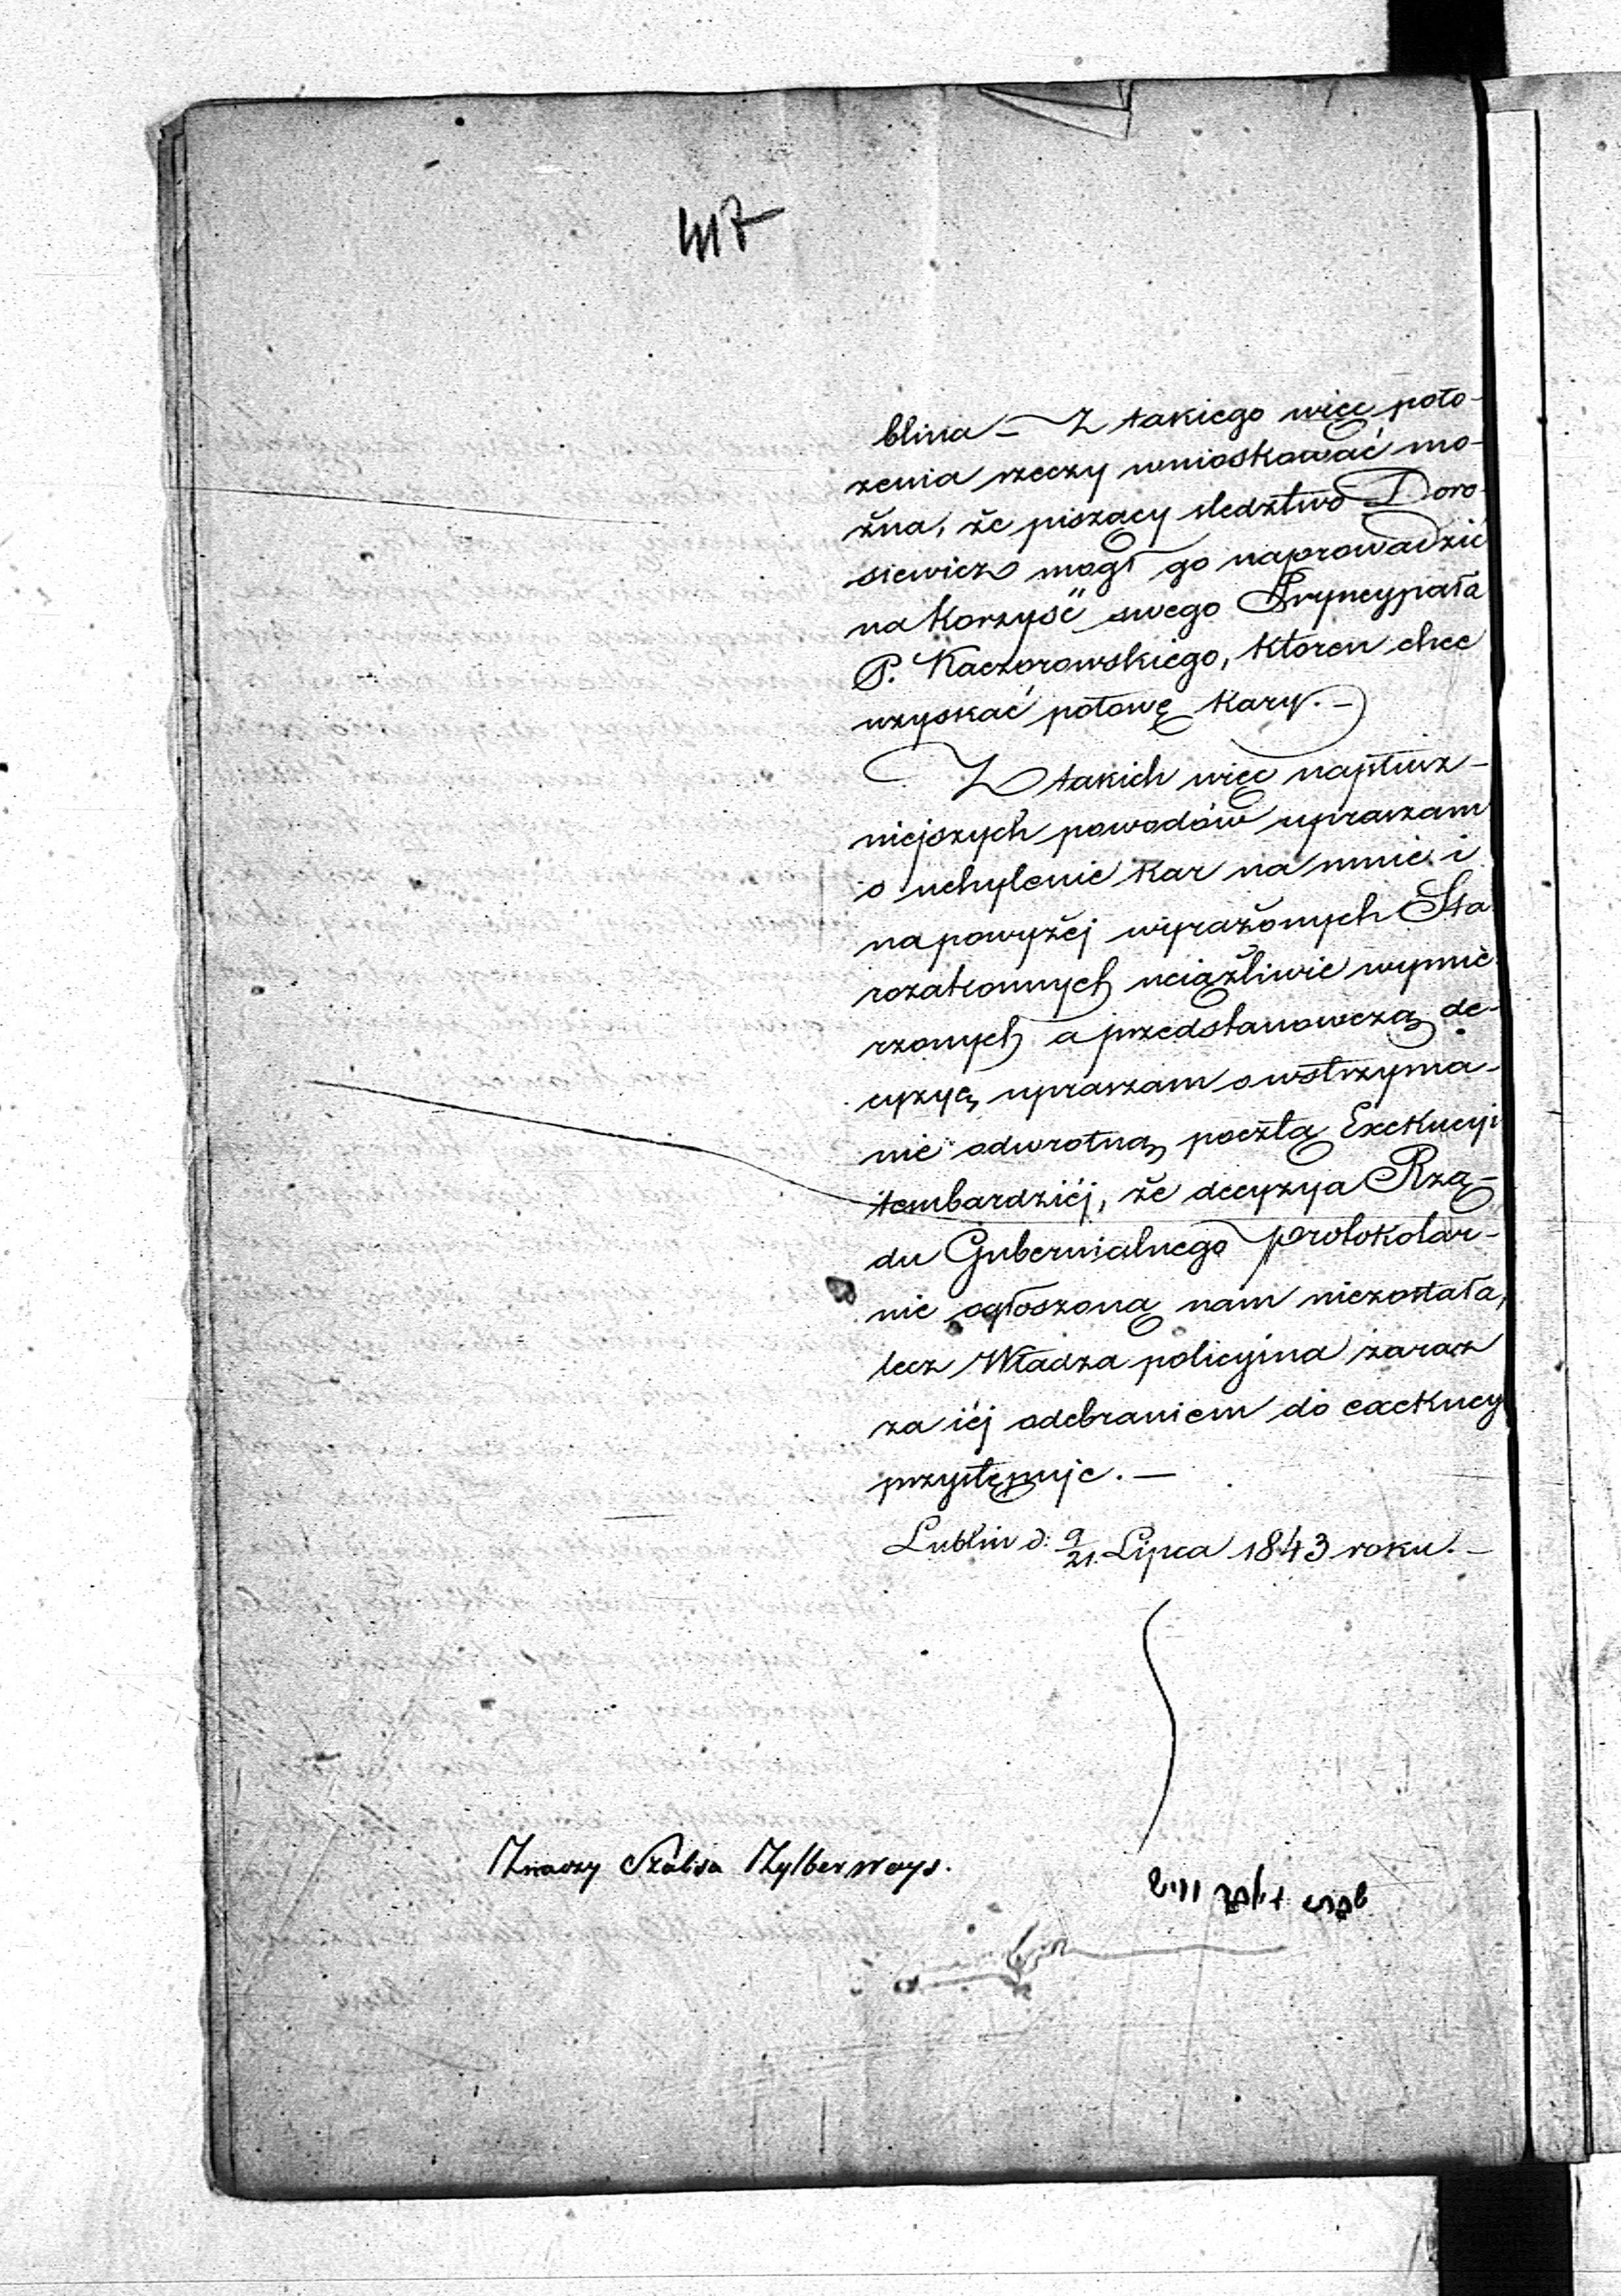 417
blina – Z takiego więc poło-
zenia rzeczy wnioskować mo-
żna, że piszący sledztwo Doro-
siewicz mogł go naprowadzić
na korzyść swego Pryncypała
P. Kaczorowskiego, ktoren chce
uzyskać połowę kary. –
Z takich więc najsłusz-
niejszych powodów upraszam
o uchylenie kar na mnie i
na powyżéj wyrażonych Sta
rozakonnych uciążliwie wymie
rzonych a przedstanowczą de-
cyzyą upraszam o wstrzyma-
nie odwrotną pocztą Exekucyi
tembardziéj, że decyzya Rzą-
du Gubernialnego protokolar-
nie ogłoszoną nam niezostała,
lecz Władza policyjna zaraz
za iéj odebraniem do exekucy
przystępuje. –
Lublin d: 9/21. Lipca 1843 roku. –
Znaczy Szabsa Zylberways.